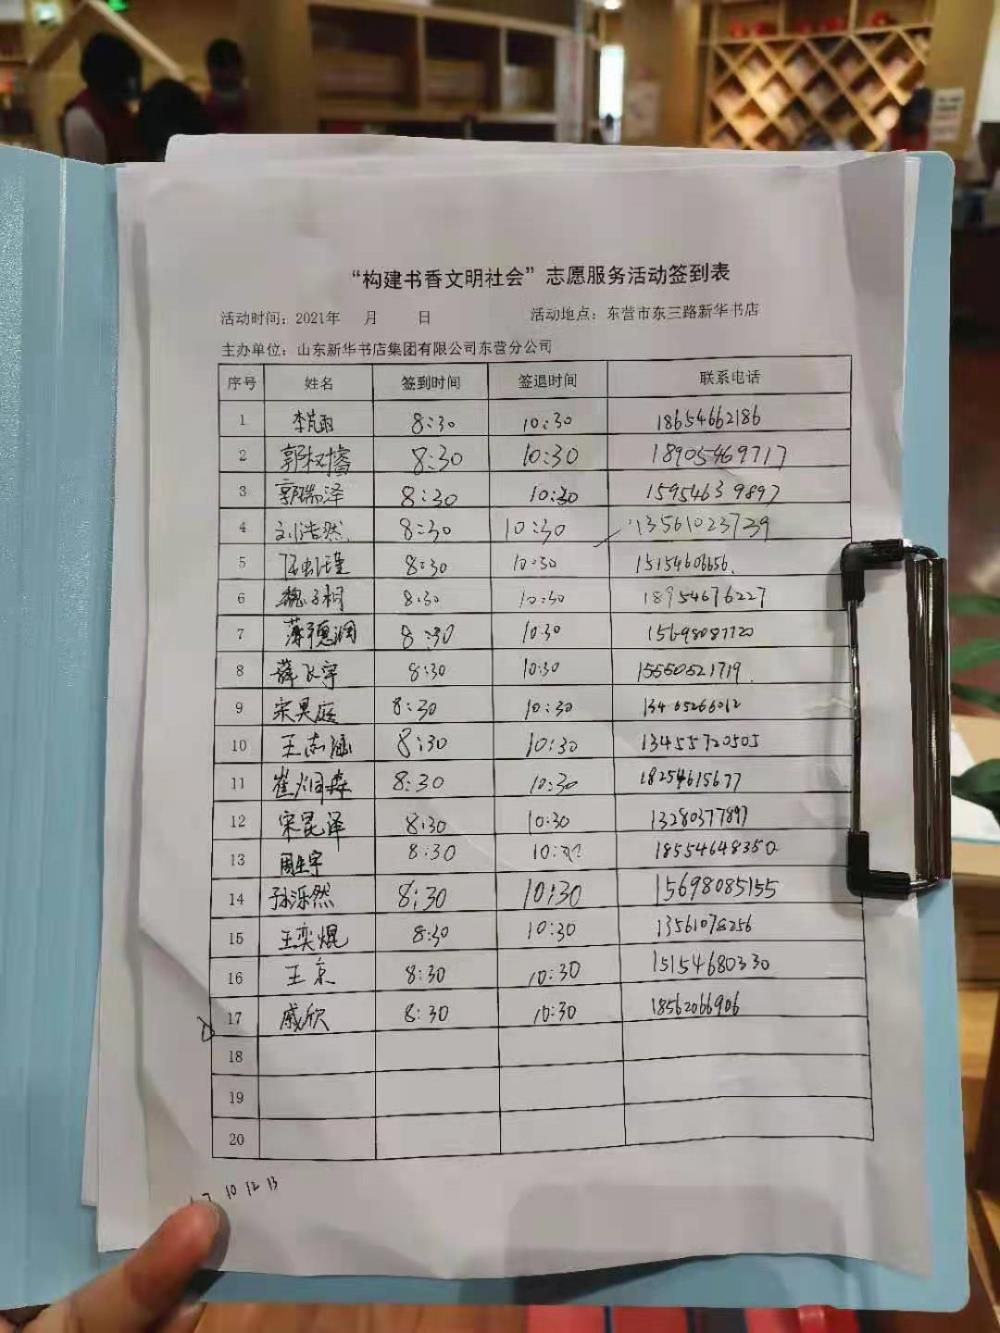 “构建书香文明社会”志愿服务活动签到表
活动时间：2021年 月 日 活动地点：东营市东三路新华书店
主办单位：山东新华书店集团有限公司东营分公司
序号 姓名 签到时间 签退时间 联系电话
1 8:30 10:30 18654662186
2 郭权睿 8:30 10:30 18905469717
3 郭瑞泽 8:30 10:30 15954639897
4 刘浩然 8:30 10:30 13561023739
5 8:30 10:30 15154606656
6 魏子桐 8:30 10:30 18954676227
7 薄德润 8:30 10:30 15698087720
8 薛飞宇 8:30 10:30 15550521719
9 宋昊庭 8:30 10:30 13465266012
10 王志涵 8:30 10:30 13455720505
11 崔炯森 8:30 10:30 18254615677
12 宋昆泽 8:30 10:30 13280377897
13 周生宇 8:30 10:30 18554648350
14 孙泺然 8:30 10:30 15698085155
15 王奕焜 8:30 10:30 13561078256
16 王京 8:30 10:30 15154680330
17 戚欣 8:30 10:30 18562066906
18
19
20
7 10 12 13